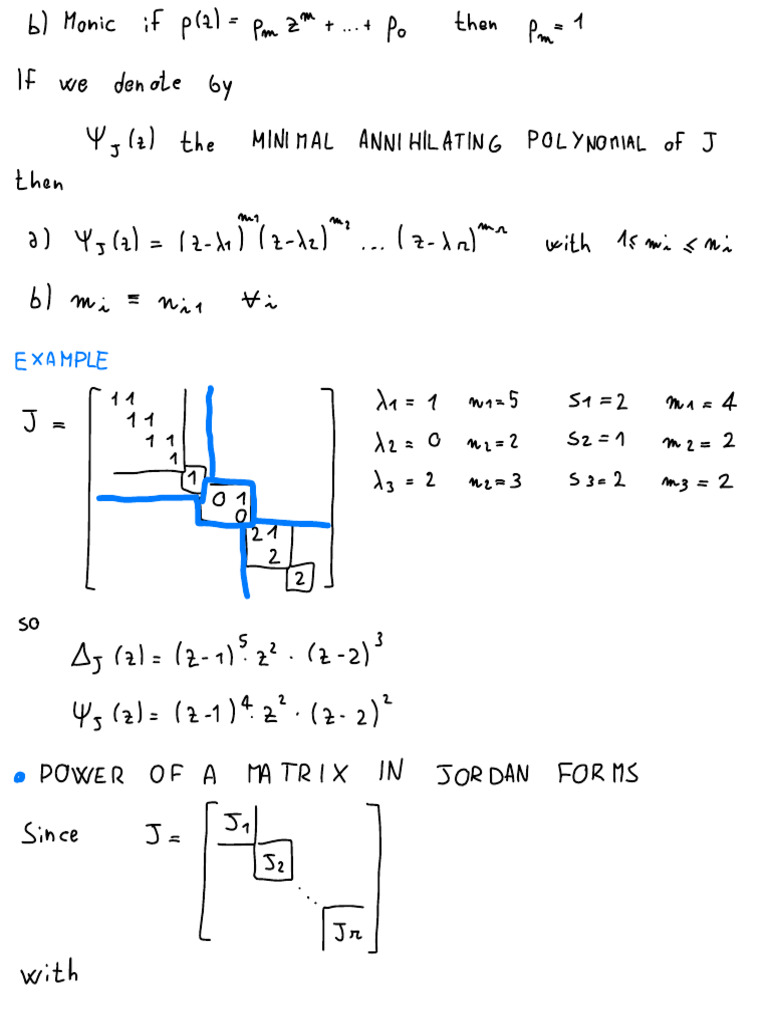 b) Monic if p(z) = pₘ zᵐ + ... + p₀ then pₘ = 1
If we denote by
Ψ_J(z) the MINIMAL ANNIHILATING POLYNOMIAL of J
then
a) Ψ_J(z) = (z-λ₁)^m₁ (z-λ₂)^m₂ ... (z-λr)^mr with 1 ≤ mi ≤ ni
b) mi = ni1 ∀i
EXAMPLE
J = λ₁ = 1 n₁ = 5 S₁ = 2 m₁ = 4
λ₂ = 0 n₂ = 2 S₂ = 1 m₂ = 2
λ₃ = 2 n₂ = 3 S₃ = 2 m₃ = 2
1 1
1 1
1 1
1
1
0 1
0
2 1
2
2
so
Δ_J(z) = (z-1)⁵ · z² · (z-2)³
Ψ_J(z) = (z-1)⁴ · z² · (z-2)²
• POWER OF A MATRIX IN JORDAN FORMS
Since J = J₁
J₂
⋱
Jr
with